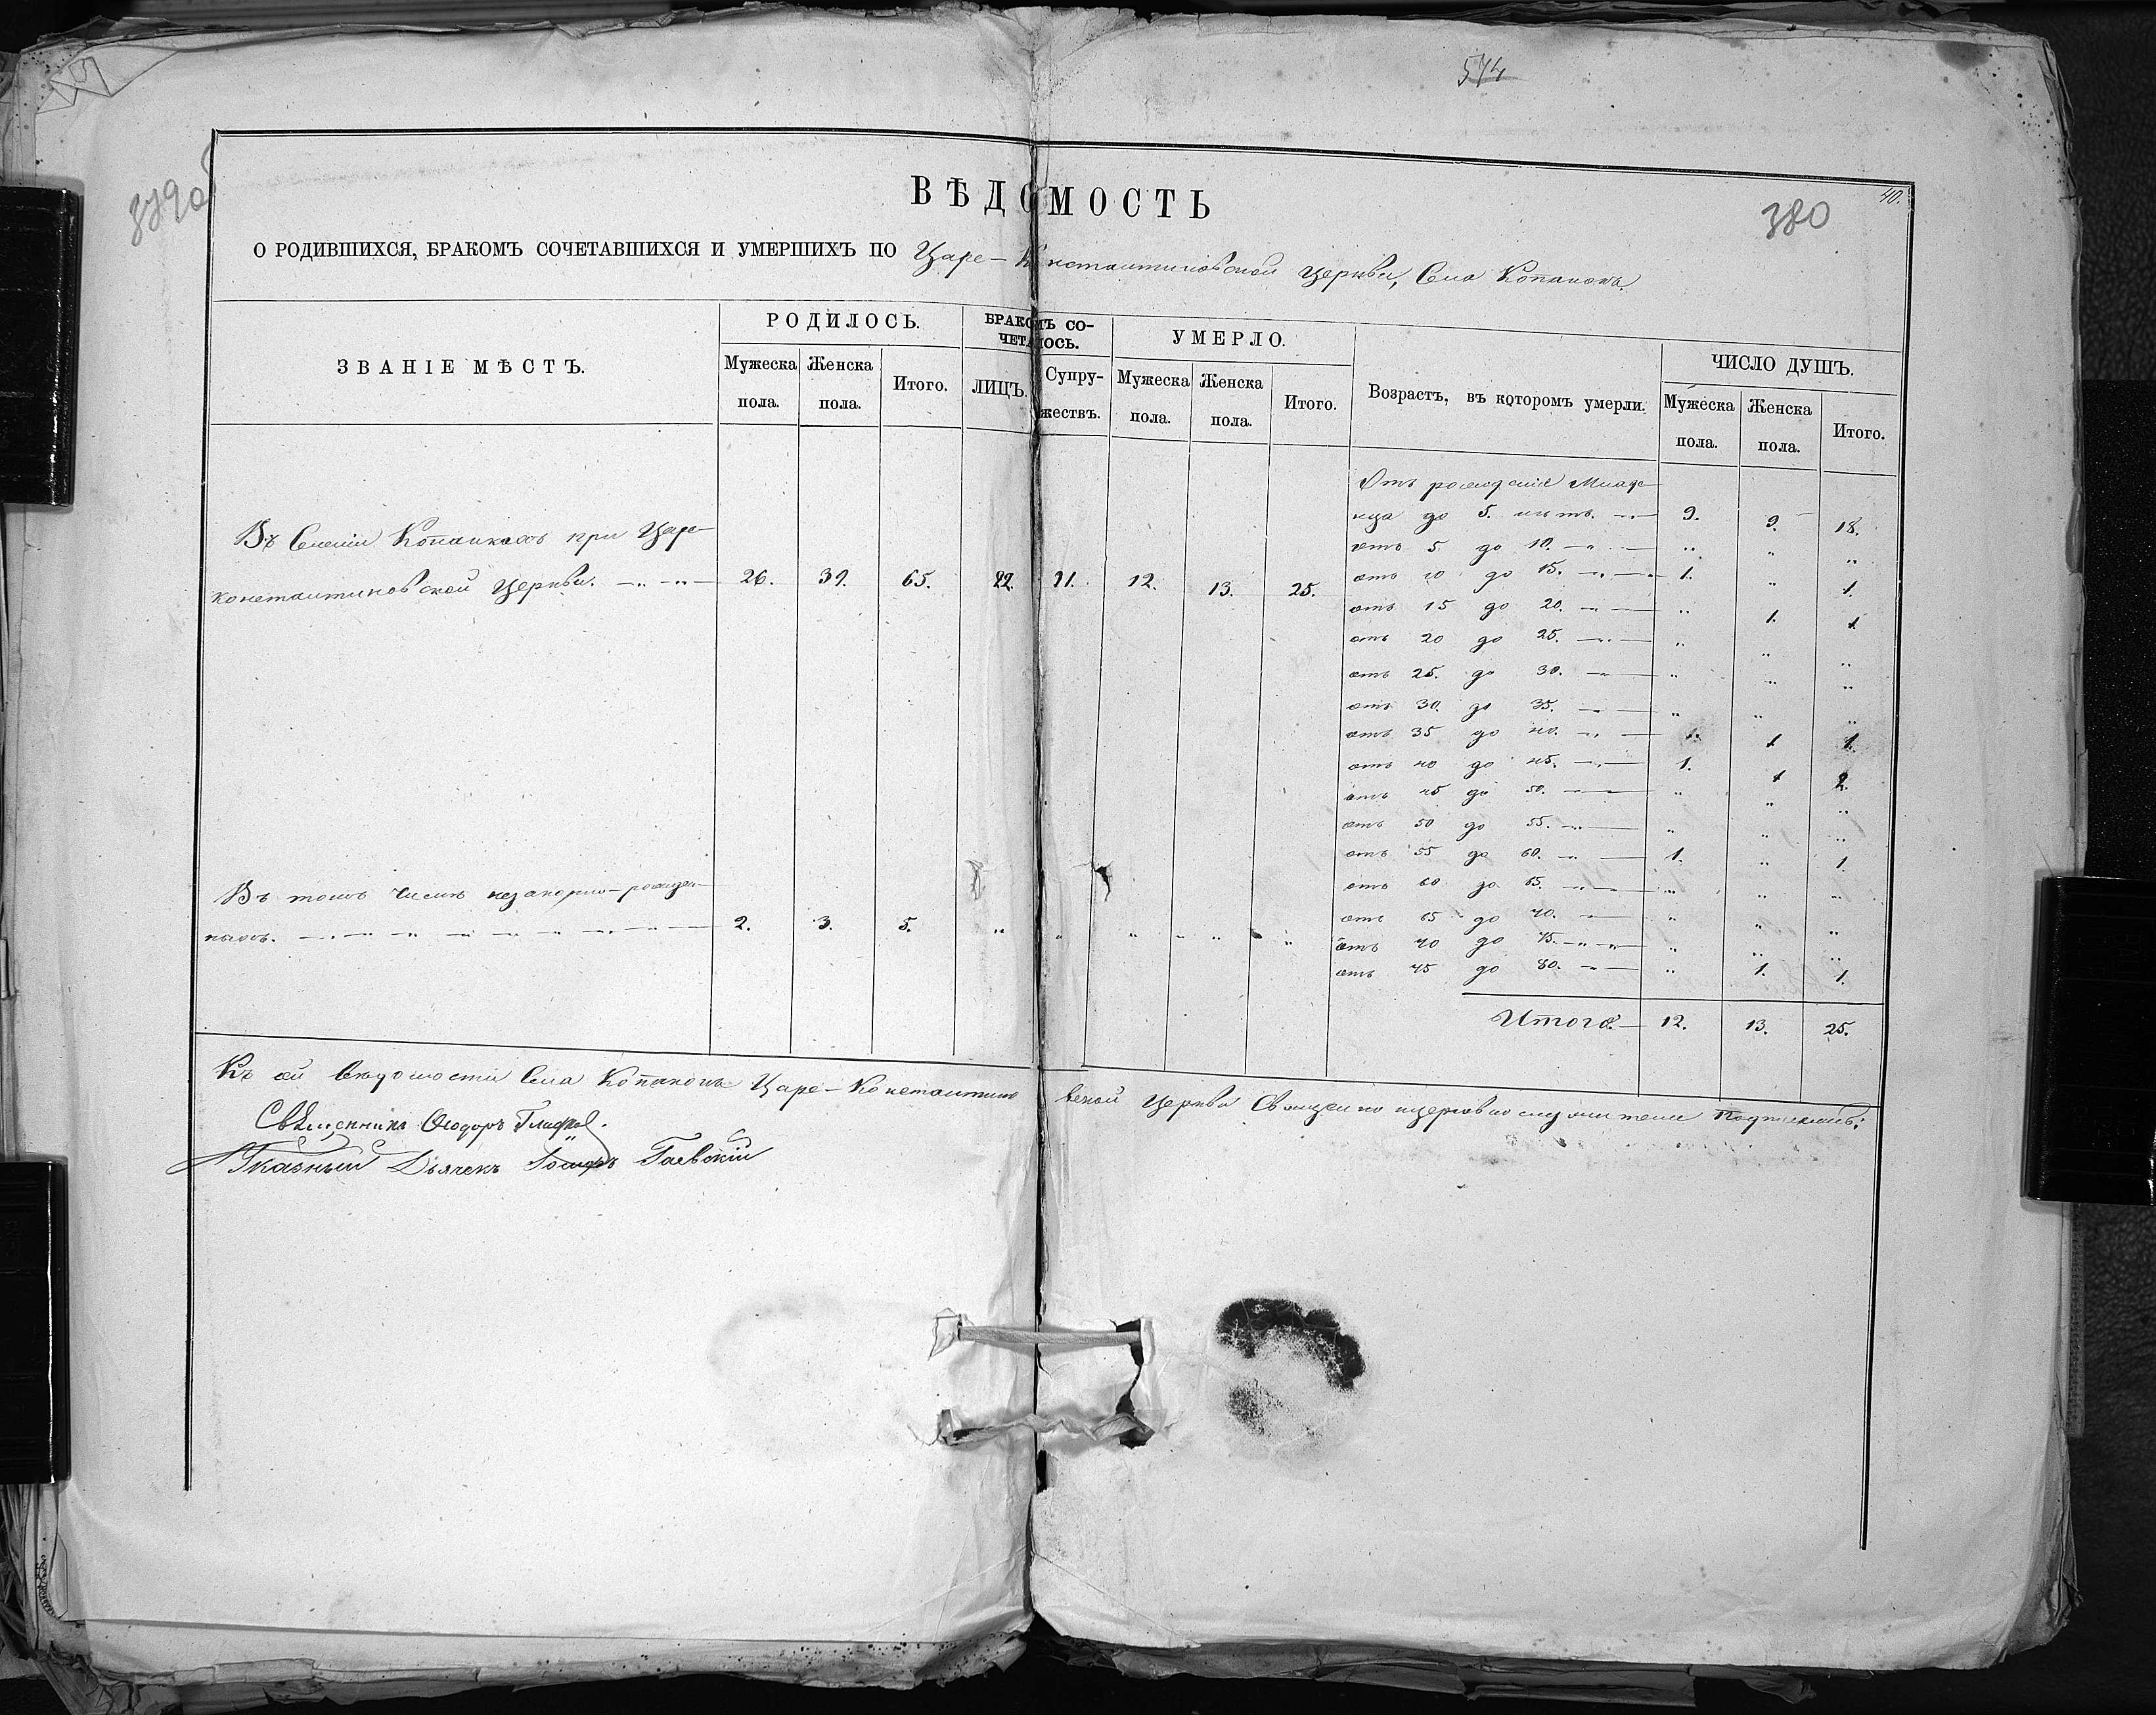 574
379 об
380
40.
ВѢДОМОСТЬ
О РОДИВШИХСЯ, БРАКОМЪ СОЧЕТАВШИХСЯ И УМЕРШИХЪ ПО Царе-Константиновской Церкви, Села Копанокъ.
ЗВАНІЕ МѢСТЪ.
РОДИЛОСЬ.
Мужеска пола.
Женска пола.
Итого.
БРАКОМЪ СО-
ЧЕТАЛОСЬ.
ЛИЦЪ.
Супру-
жествъ.
УМЕРЛО.
Мужеска пола.
Женска пола.
Итого.
Возрастъ, въ которомъ умерли.
ЧИСЛО ДУШЪ.
Мужеска пола.
Женска пола.
Итого.
Въ Селеніи Копанкахъ при Царе-
константиновской Церкви. 26. 39. 65. 22. 11. 12. 13. 25.
Въ томъ числѣ незаконно-рожден-
ныхъ. 2. 3. 5. „ „ „ „ „
Отъ рожденія Младе-
нца до 5. лѣтъ. 9. 9. 18.
отъ 5. до 10. „ „ „
отъ 10 до 15. 1. „ 1.
отъ 15 до 20. „ 1. 1.
отъ 20 до 25. „ „ „
отъ 25. до 30. „ „ „
отъ 30. до 35. „ „ „
отъ 35 до 40. 1 1.
отъ 40 до 45. 1. 1 2.
отъ 45 до 50. „ „ „
отъ 50 до 55. „ „ „
отъ 55 до 60. 1. „ 1.
отъ 60 до 65. „ „ „
отъ 65 до 70. „ „ „
отъ 70 до 75. „ „ „
отъ 75 до 80. „ 1. 1.
Итого. 12. 13. 25.
Къ сей Вѣдомости Села Копанокъ Царе-Константиновской Церкви Священно церковнослужители Подписались:
Священникъ Ѳеодоръ
Указный Дьячекъ Гаевскій